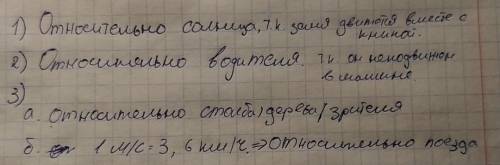 1) Относительно солнца, т.к. земля двигается вместе с
книгой.
2) Относительно водителя. т.к он неподвижен
в машине
3)
а. относительно столба/дерева/зрителя
б. 1 м/с = 3, 6 км/ч. ⇒ относительно поезда